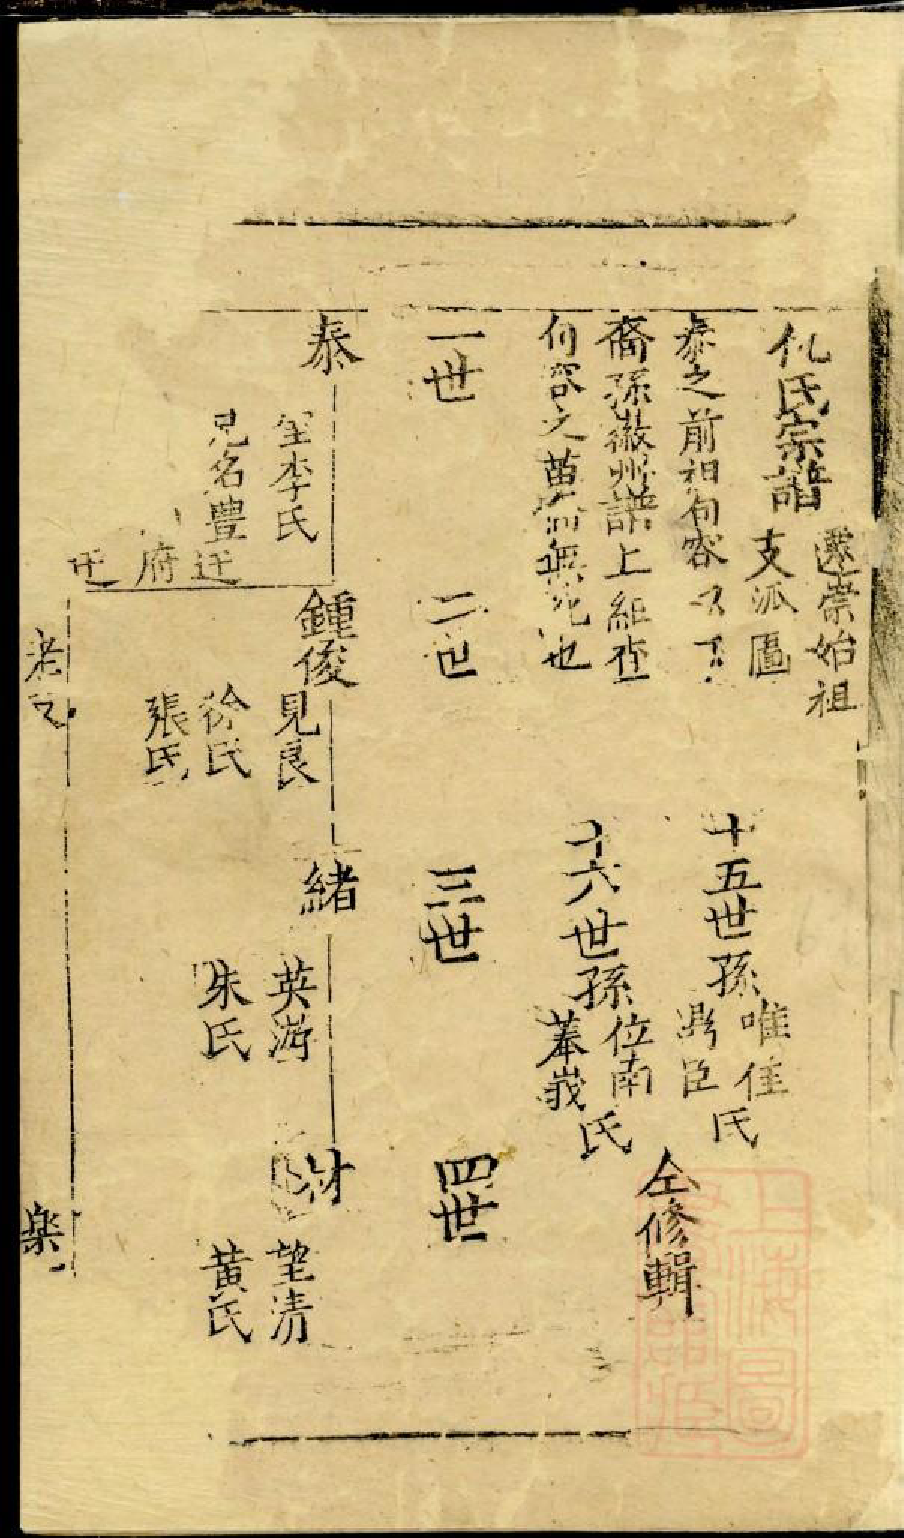 仇氏宗譜
遷崇始祖
支派圖
泰之前祖句容
裔孫徽州譜上組查
句容之萬無也
十五世孫
唯佳
鼎臣
氏
十六世孫
位南
奉峩
氏
仝修輯
一世
二世
三世
四世
泰
室李氏
兄名豐迁
府
鍾俊
見良
徐氏
張氏
緒
英游
朱氏
財
望清
黃氏
老
楽